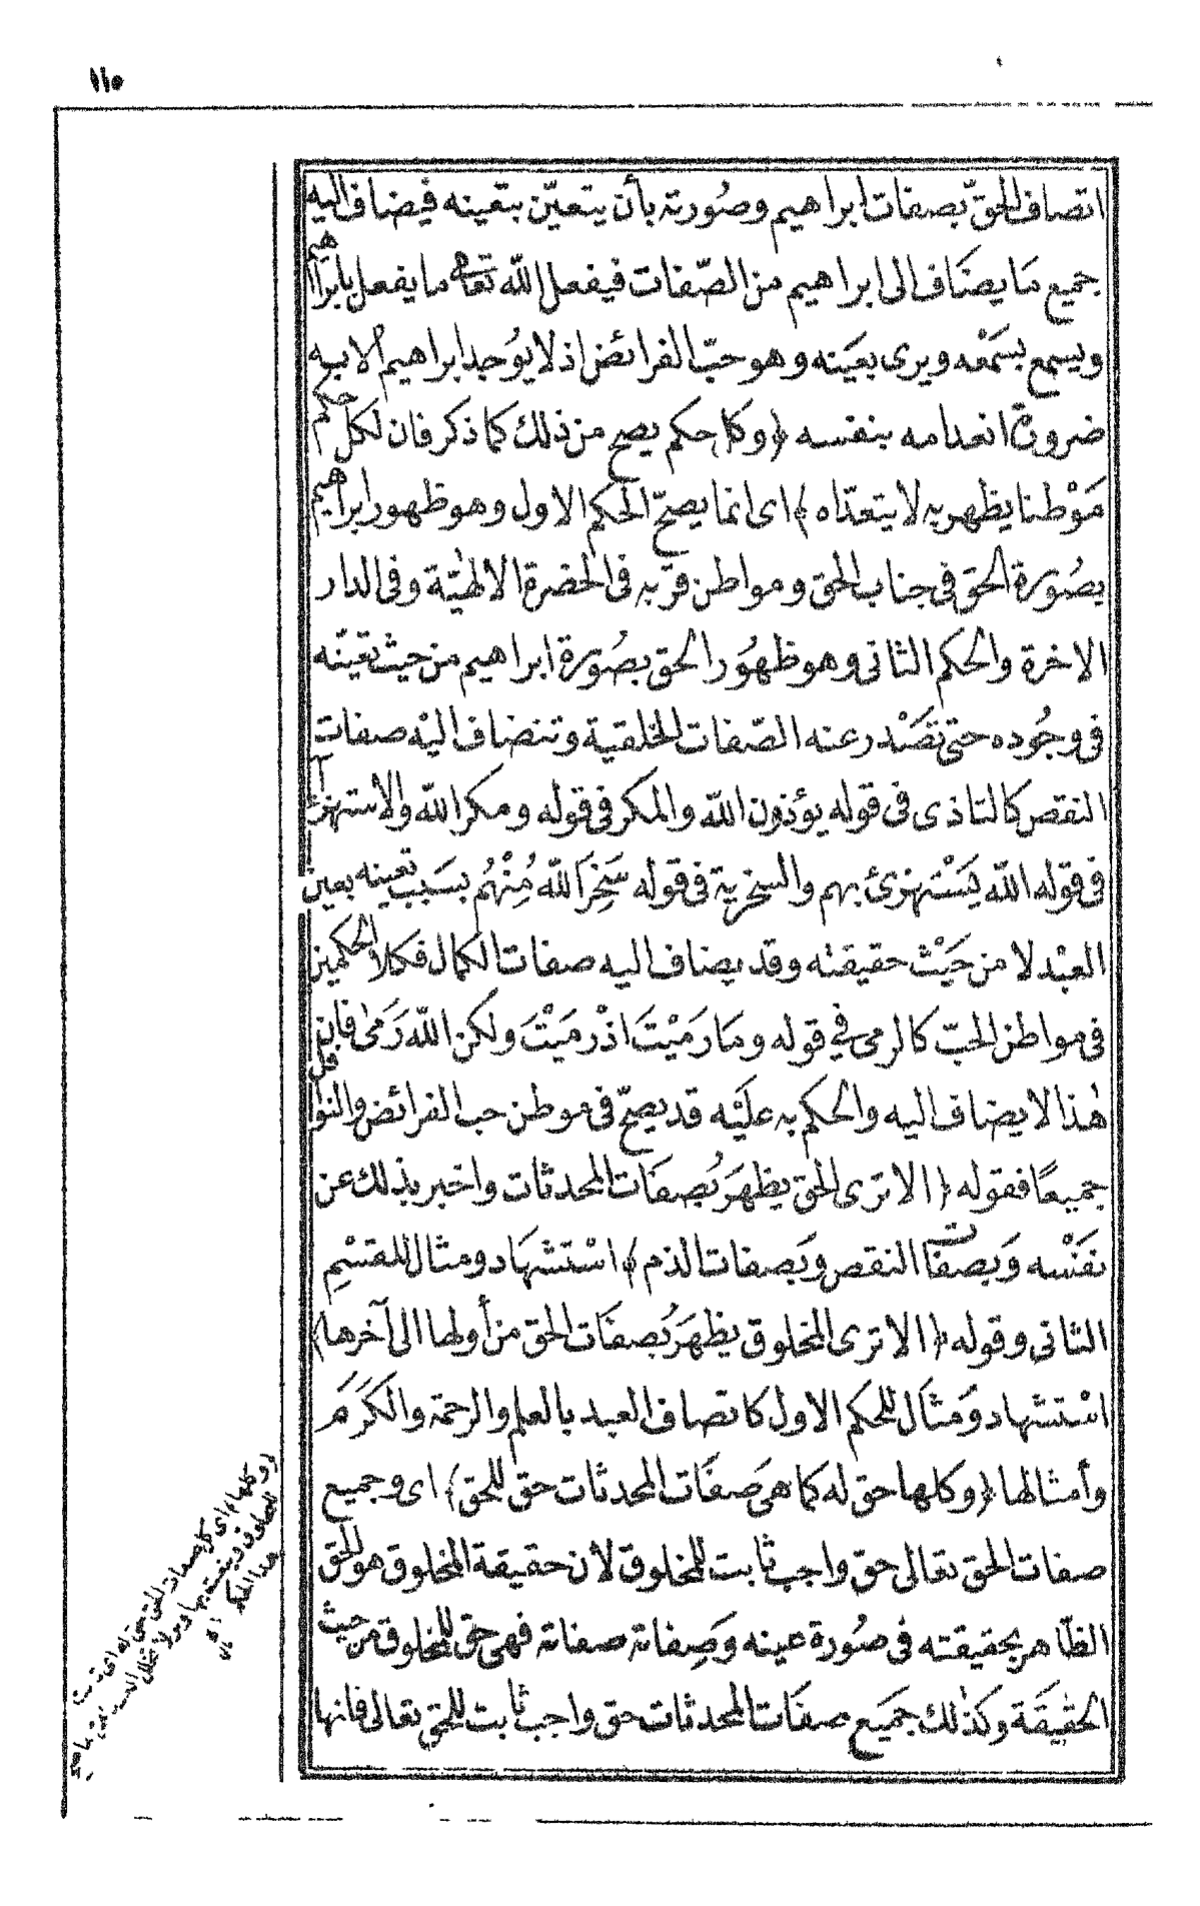 ١١٥
اتصاف الحقّ بصفات ابراهيم وصُورته بأن يتعيّن بتعينه فيضاف اليه
جميع مَا يضَاف الى ابراهيم من الصّفات فيفعل اللّه تعالى ما يفعل بابراهيم
ويسمع بسَمْعه ويرى بعَينه وهو حبّ الفرائض اذ لا يوُجد ابراهيم الا به
ضرورة انعدامه بنفسه ﴿وكل حكم يصح من ذلك كما ذكر فان لكل حكم
مَوْطنا يظهر به لا يتعدّاه﴾ اى انما يصحّ الحكم الاول وهو ظهور ابراهيم
بصُورة الحق فى جناب الحق ومواطن قربه فى الحضرة الالهيّة وفى الدار
الاخرة والحكم الثانى وهو ظهُور الحق بصُورة ابراهيم من حيث تعيّنه
فى وجُوده حتى تصَدر عنه الصّفات الخلقية وتنضاف اليْه صفات
النقص كالتاذى فى قوله يؤذون اللّه والمكر فى قوله ومكر اللّه والاستهزاء
فى قوله اللّه يَسْتهزئ بهم والسخرية فى قوله سَخِرَ اللّه مُِنْهُم بسَبب تعينه بعين
العبْد لا من حَيْث حقيقته وقد يضاف اليه صفات الكمال فكلا الحكمين
فى مواطن الحبّ كالرمى في قوله ومَا رَمَيْتَ اذْ رمَيْتَ ولكن اللّه رَمَى فان
هٰذا لا يضاف اليه والحكم به علَيْه قد يصحّ فى موطن حب الفرائض والنوافل
جميعًا فقوله ﴿الا ترى الحق يظهَر بُصِفَات المحدثات واخبر بذلك عن
نفَسْه وَبصفات النقص وَبصفات الذم﴾ اسْتشهَاد ومثال للقسْمِ
الثانى وقوله ﴿الا ترى المخلوق يظهَر بُصِفَات الحق من أولها الى آخرها﴾
اسْتشهاد وَمثَال للحكم الاول كاتصاف العبد بالعلم والرحمة والكَرَم
وأمثالها ﴿وكلها حق له كما هى صفَات المحدثات حق للحق﴾ اى وجميع
صفات الحق تعالى حق واجب ثابت للمخلوق لأن حقيقة المخلوق هو الحق
الظاهر بحقيقته فى صُورة عينه وَصِفاته صفاته فهى حق للمخلوق من حيث
الحقيقَة وكذٰلك جمَيع صفَات المحدثات حق واجب ثابت للحق تعالى فانها
(وكلها) اى كل صفات الحق حق له اى
هذا الحكم